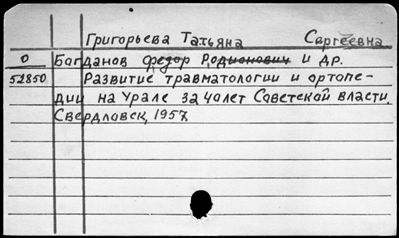 Григорьева Татьяна Сергеевна
0 Богданов Федор Родионович и др.
52850 Развитие травматологии и ортопе-
дии на Урале за 40 лет Советской власти.
Свердловск, 1957.